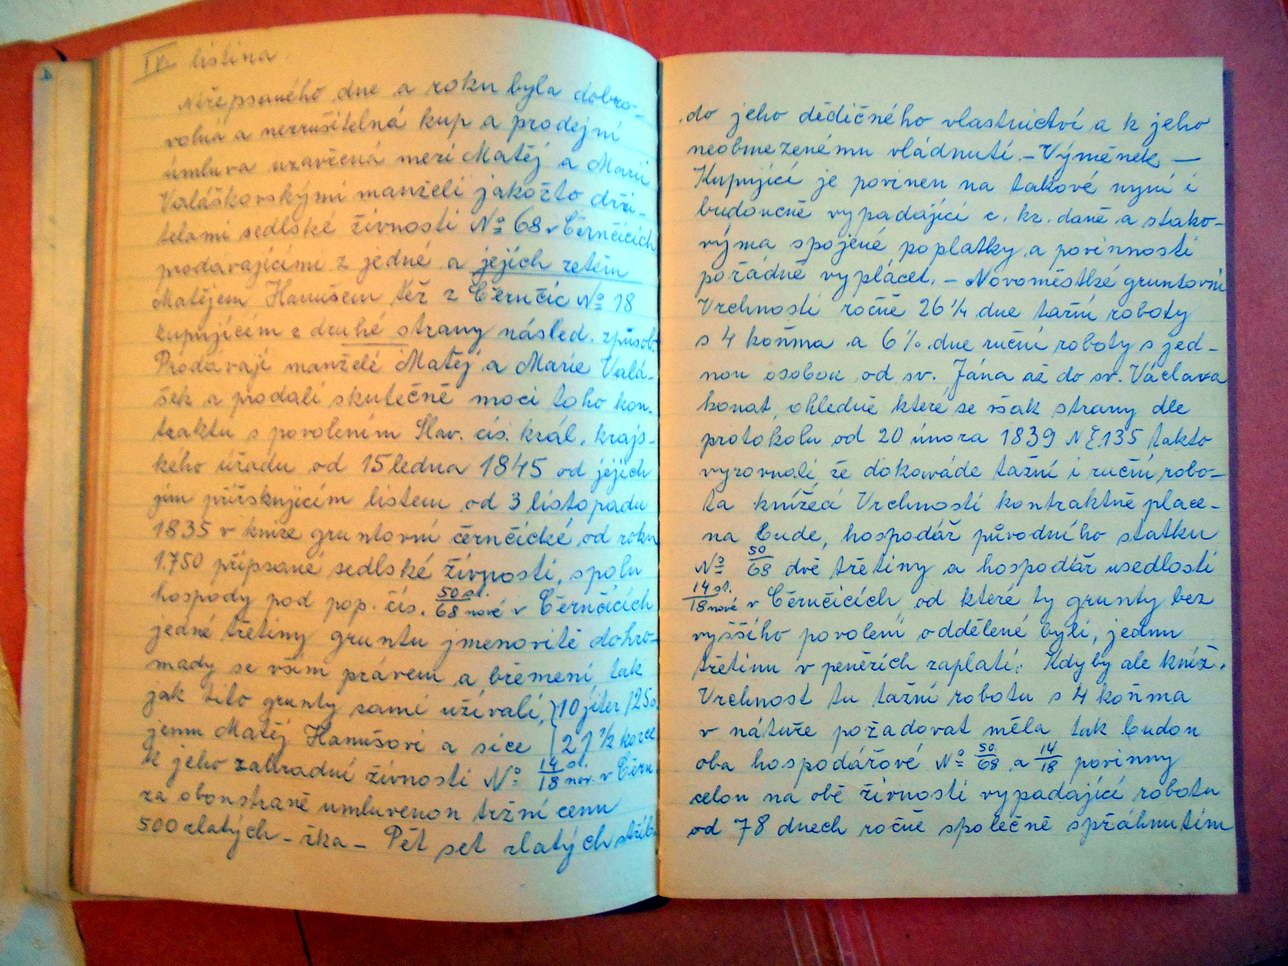 IV. listina.
Nížepsaného dne a roku byla dobro-
volná a nezrušitelná kup a prodejní
úmluva uzavřená mezi Matěj a Marií
Valáškovskými manželi jakožto drži-
telami sedlské živnosti No 68 v Černčicích
prodávajícími z jedné a jejich zetěm
Matějem Hanušem též z Černčic No 18
kupujícím z druhé strany násled. způsob.
Prodávají manželé Matěj a Marie Valá-
šek a prodali skutečně mocí toho kon-
traktu s povolením Slav. cís. král. krajs-
kého úřadu od 15 ledna 1845 od jejich
jim přiřknujícím listem od 3 listopadu
1835 v knize gruntovní černčické od roku
1750 připsané sedlské živnosti, spolu
hospody pod pop. čís. 50 st./68 nové v Černčicích
jedné třetiny gruntu jmenovitě dohro-
mady se vším právem a břemeni tak
jak tito grunty samí užívali, } 10 jiter 1250
jemu Matěj Hanušovi a sice { 27 1/2 korce
k jeho zahradní živnosti No 14 st./18 nov. v Čern.
za obonstraně umluvenou tržní cenu
500 zlatých - žka - Pět set zlatých stříb.
do jeho dědičného vlastnictví a k jeho
neobmezenému vládnutí. - Výměnek -
Kupující je povinen na takové nyní i
budoucně vypadající c. kr. daně a stako-
výma spojené poplatky a povinnosti
pořádně vyplácet. - Novoměstké gruntovní
Vrchnosti ročně 26 1/4 dne tažní roboty
s 4 koňma a 6 1/2 dne ruční roboty s jed-
nou osobou od sv. Jána až do sv. Václava
konat, ohledně které se však strany dle
protokolu od 20 února 1839 NE.135 takto
vyrovnali, že dokawáde tažní i ruční robo-
ta knížecí Vrchnosti kontraktně place-
na bude, hospodář původního statku
No 50/68 dvě třetiny a hospodář usedlosti
14 st./18 nové v Černčicích, od které ty grunty bez
vyššího povolení oddělené byli, jednu
třetinu v penězích zaplatí: Kdyby ale kníž.
Vrchnost tu tažní robotu s 4 koňma
v nátuře požadovat měla tak budou
oba hospodářové No 50/68 a 14/18 povinny
celou na obě živnosti vypadající robotu
od 78 dnech ročně společně spřáhnutím